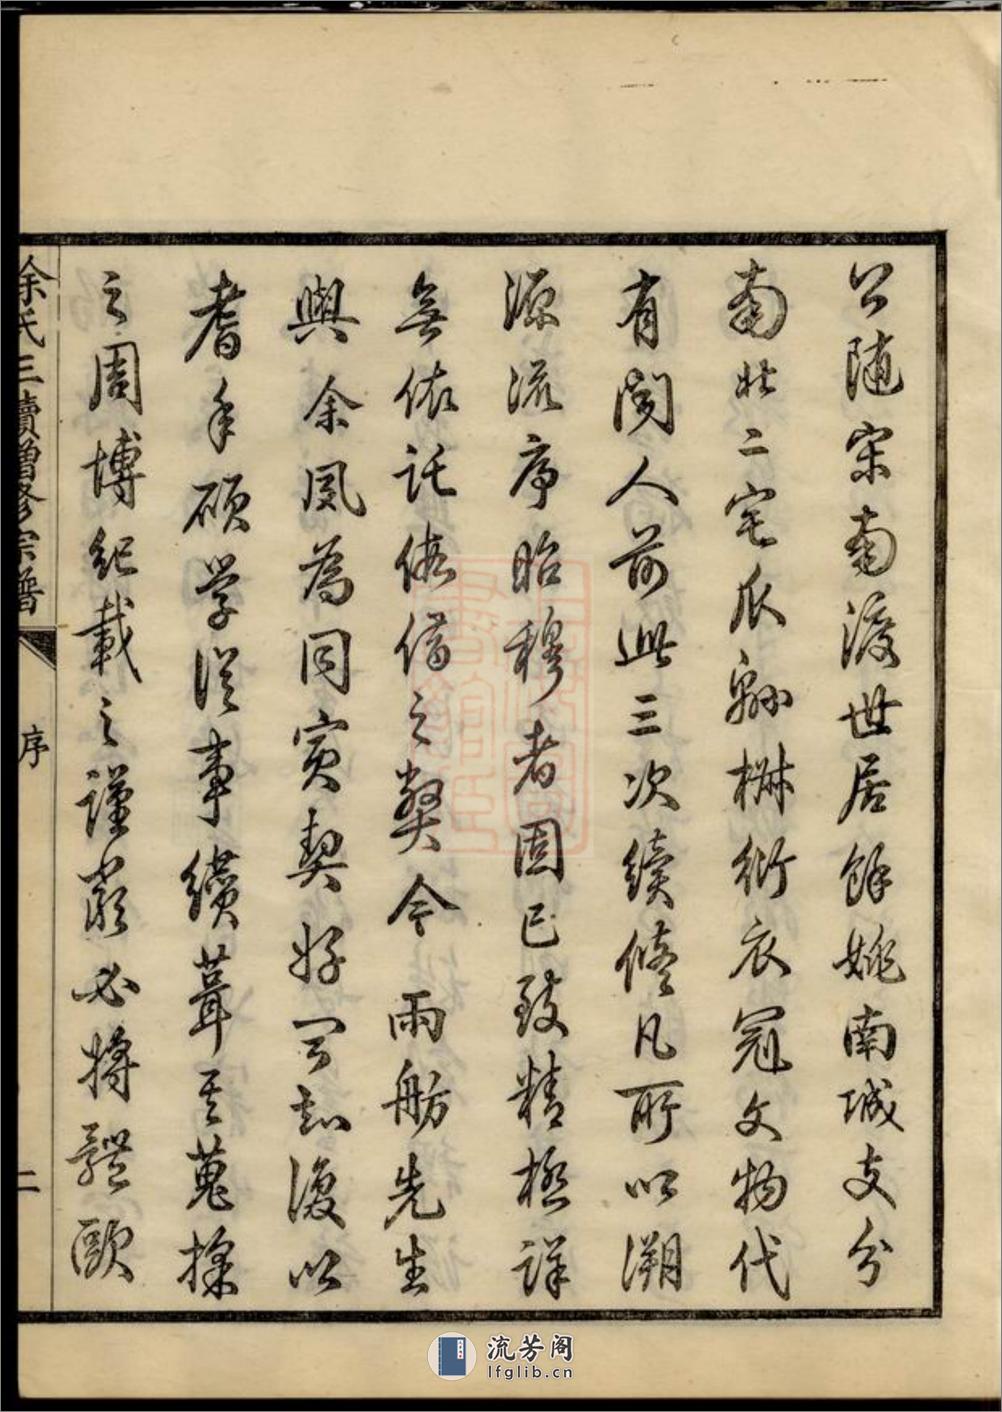 公随宋南渡世居餘姚南城支分
南北二宅瓜緜椒衍衣冠文物代
有聞人前此三次續修凡所以溯
源流序昭穆者固已致精極詳
無依託假借之獘今雨舫先生
與余夙為同寅契好公知復以
耆年碩學從事續葺其蒐採
之周博紀載之謹嚴必將軼歐
余氏三續增修宗譜
序
二
流芳阁
lfglib.cn